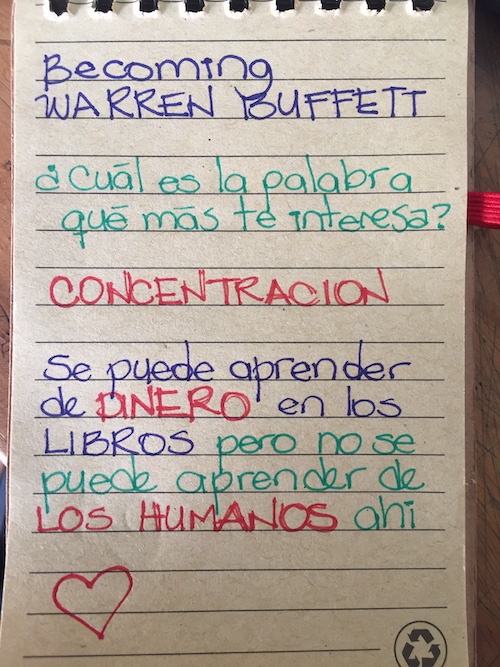 Becoming
WARREN BUFFETT
¿Cuál es la palabra
qué más te interesa?
CONCENTRACION
Se puede aprender
de DINERO en los
LIBROS pero no se
puede aprender de
LOS HUMANOS ahi